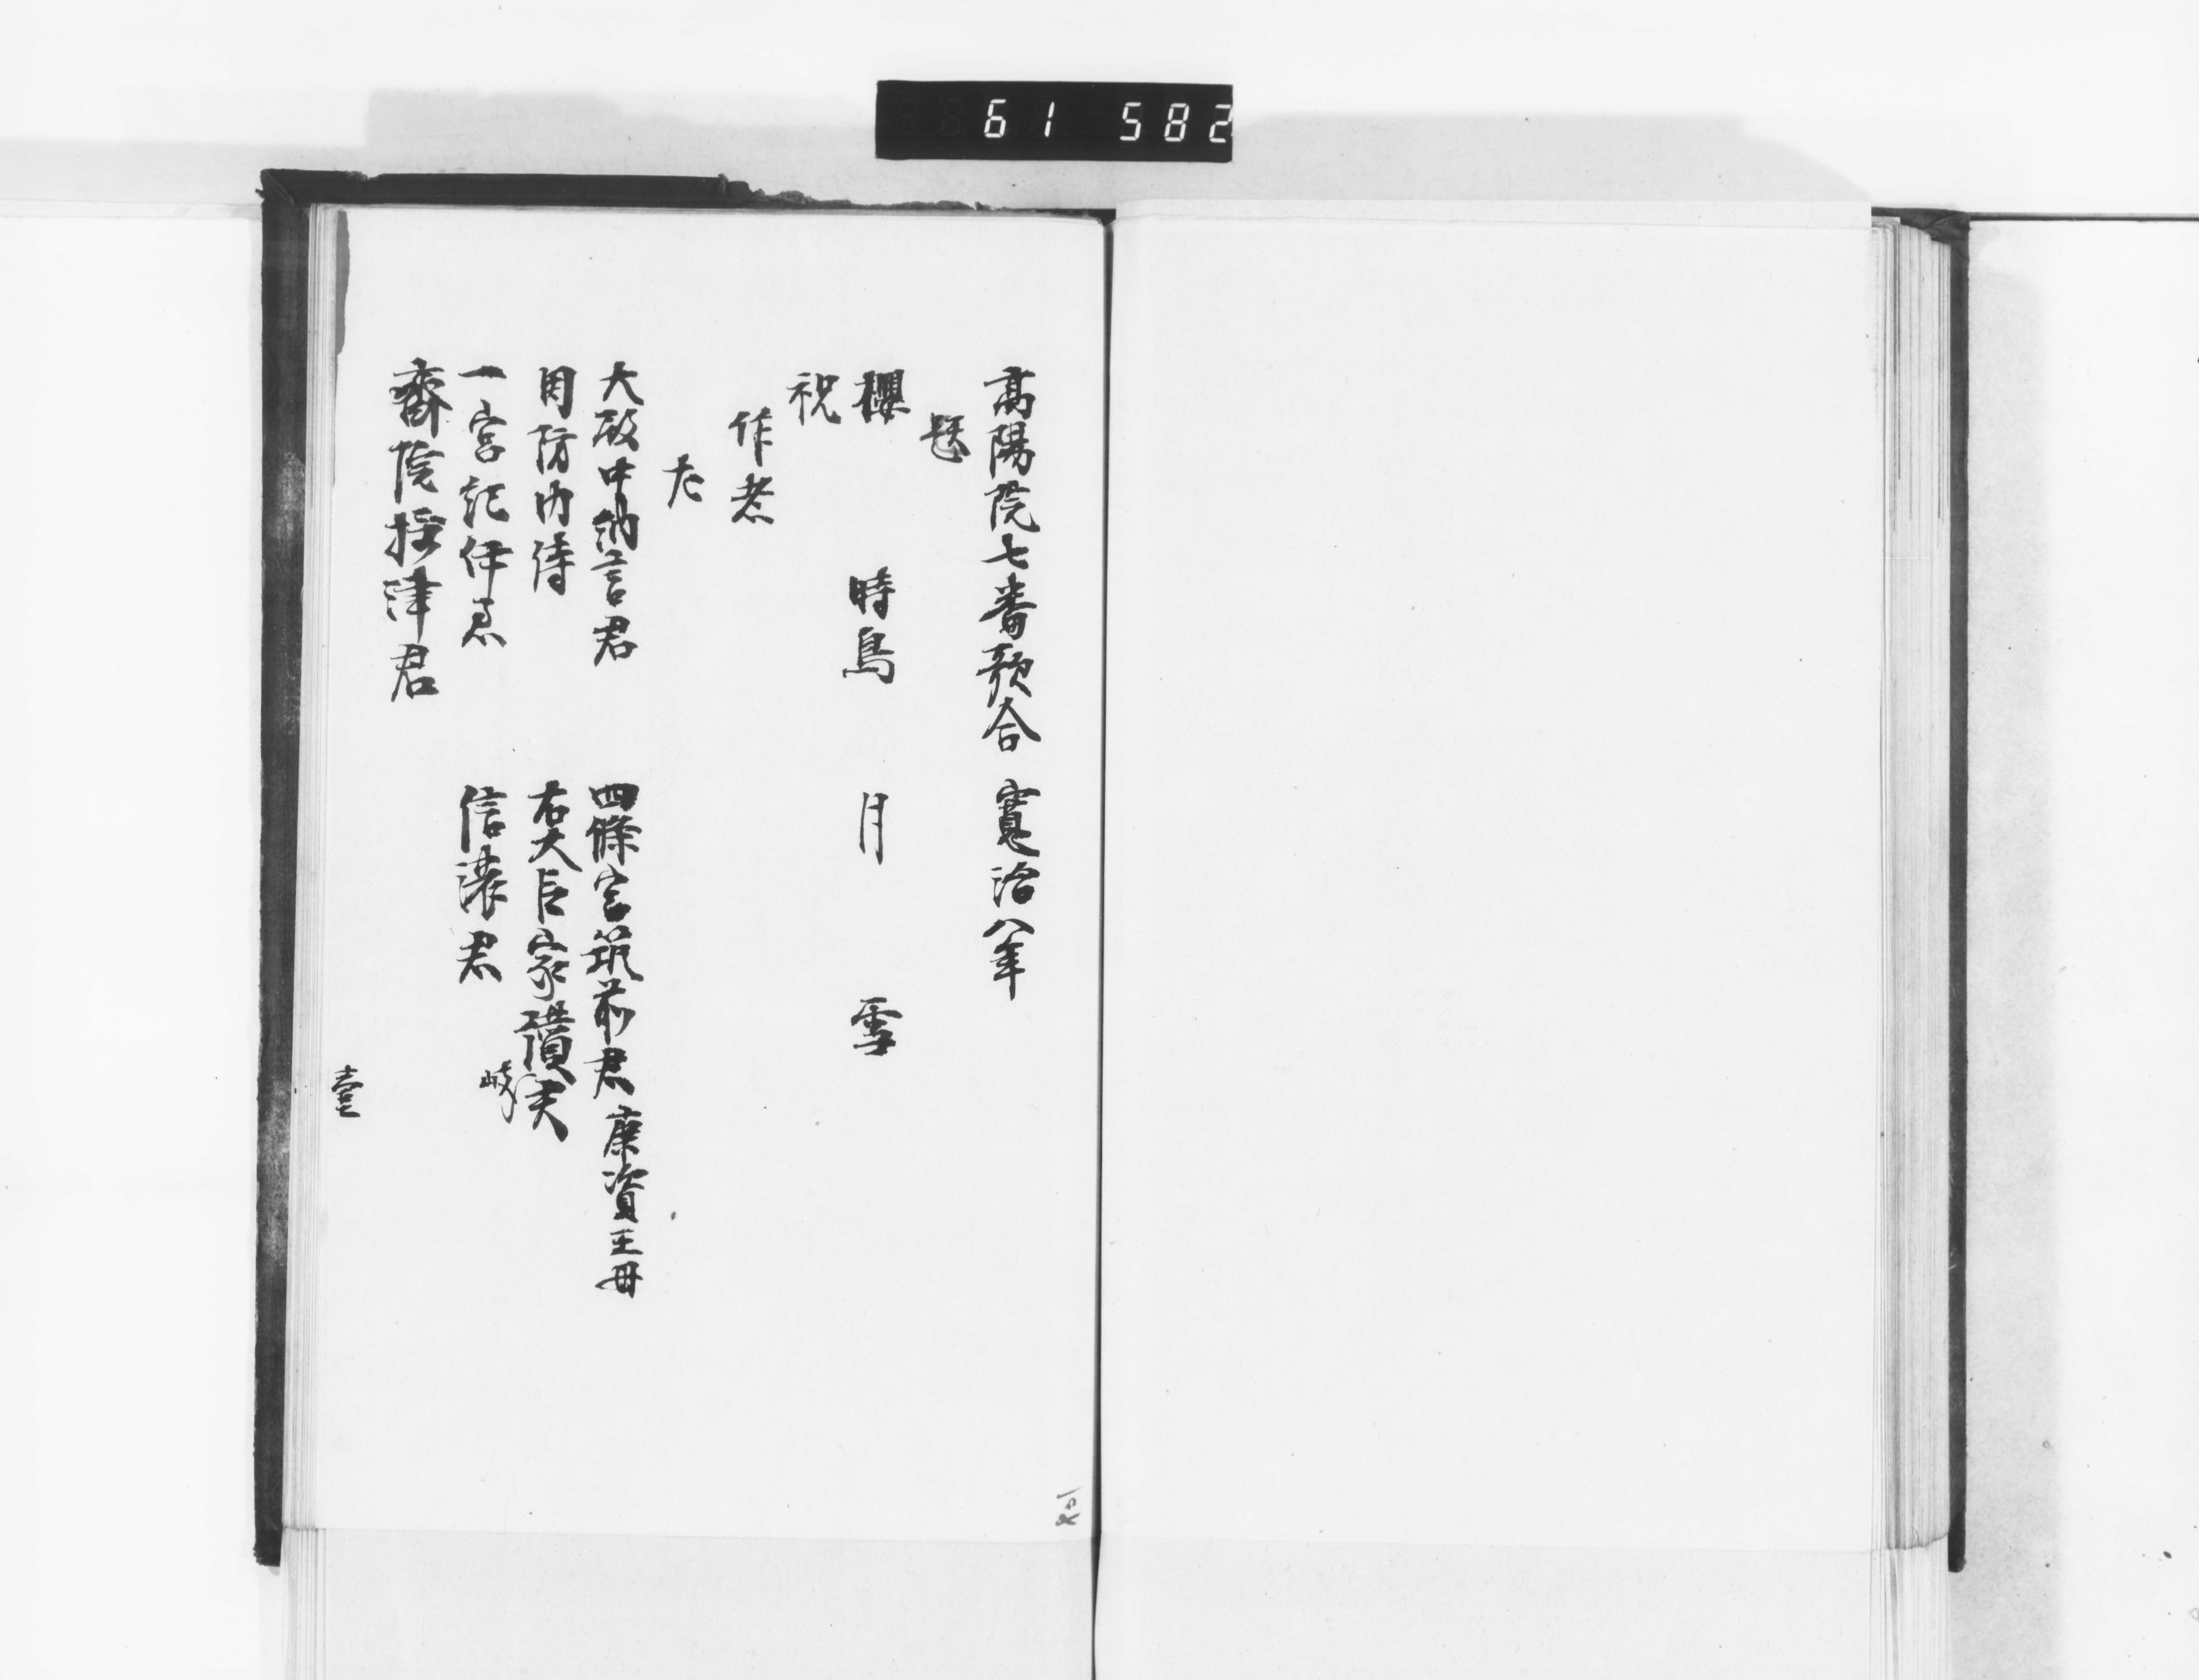 61 582
高陽院七番歌合 寛治八年
題
櫻 時鳥 月 雪
祝
作者
左
大殿中納言君 四條宮筑前君 康資王母
周防内侍 右大臣家讃岐君
一宮紀伊君 信濃君
斎院摂津君
壹